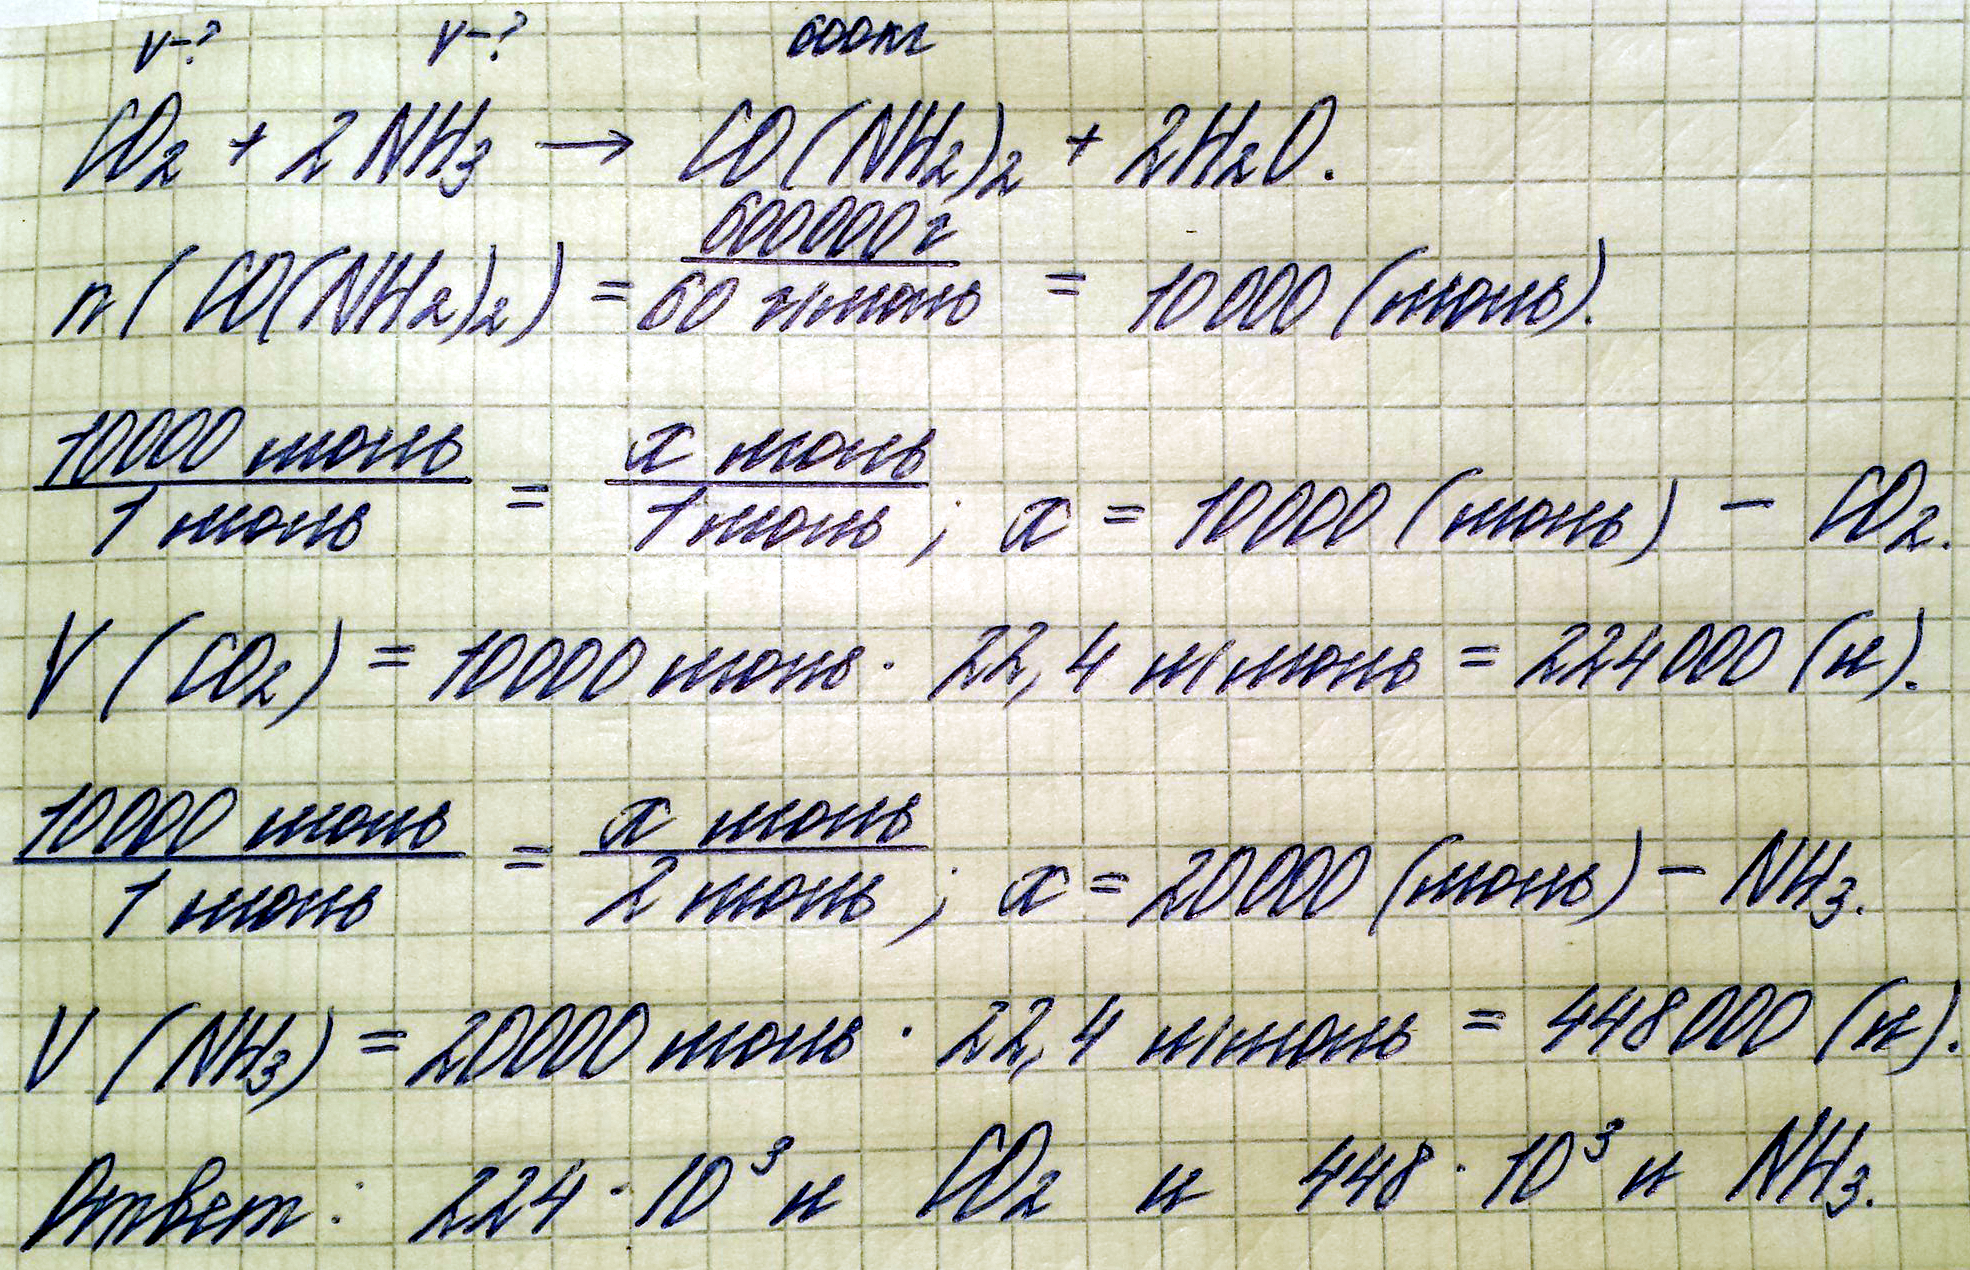 V-? V-? 600кг
CO₂ + 2NH₃ → CO(NH₂)₂ + 2H₂O.
n(CO(NH₂)₂) = 600000г / 60 г/моль = 10000 (моль).
10000 моль / 1 моль = x моль / 1 моль; x = 10000 (моль) - CO₂.
V(CO₂) = 10000 моль · 22,4 л/моль = 224000 (л).
10000 моль / 1 моль = x моль / 2 моль; x = 20000 (моль) - NH₃.
V(NH₃) = 20000 моль · 22,4 л/моль = 448000 (л).
Ответ: 224 · 10³ л CO₂ и 448 · 10³ л NH₃.